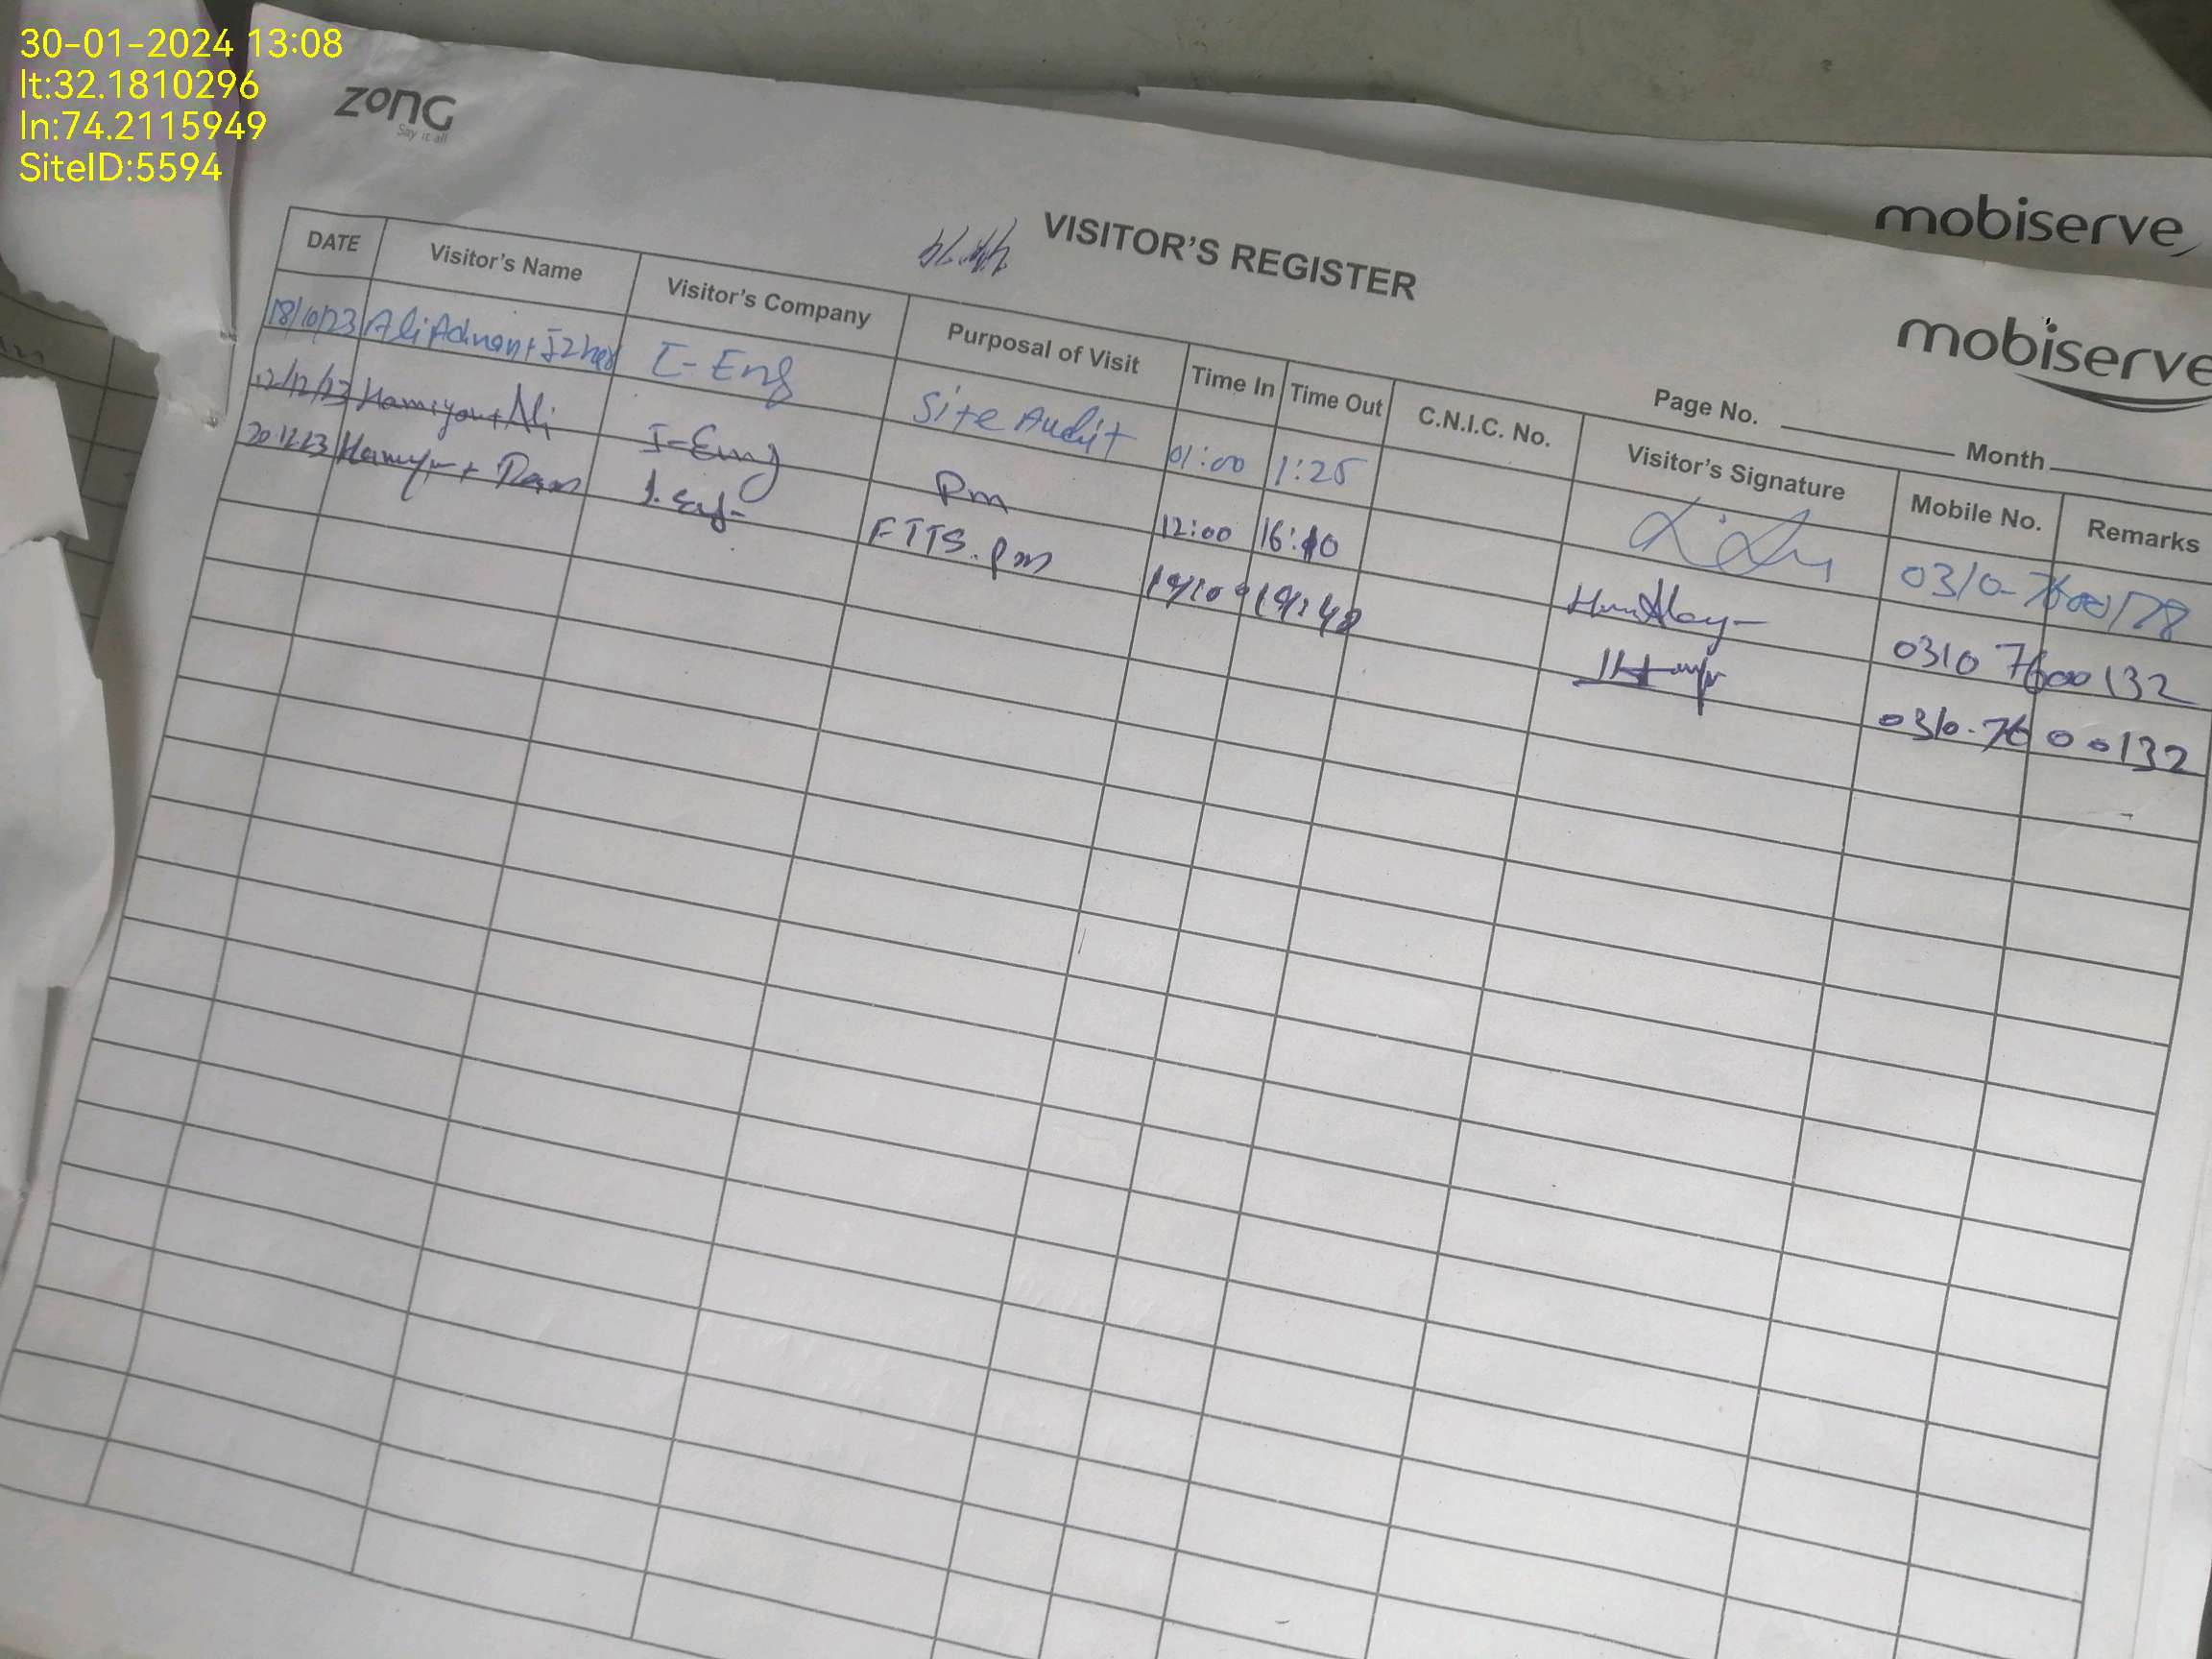 30-01-2024 13:08
lt:32.1810296
ln:74.2115949
SiteID:5594
zong
Say it all
mobiserve
VISITOR'S REGISTER
mobiserve
Page No. Month
DATE Visitor's Name Visitor's Company Purposal of Visit Time In Time Out C.N.I.C. No. Visitor's Signature Mobile No. Remarks
18/10/23 Ali Adnan + Izhar I-Eng Site Audit 01:00 1:25 0310-7600178
12/12/23 Hamayou + Ali I-Eng Pm 12:00 16:10 0310 7600132
20.12.23 I.Eng- FTTS.pm 19:48 0310-7600132